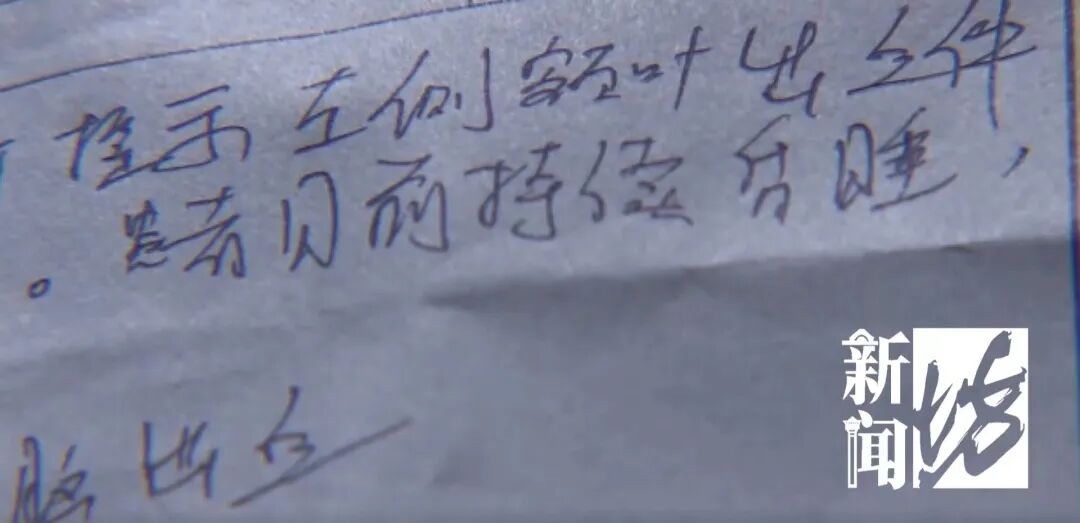 提示左侧额叶出血伴
。患者目前持续昏睡，
脑出血
新闻坊